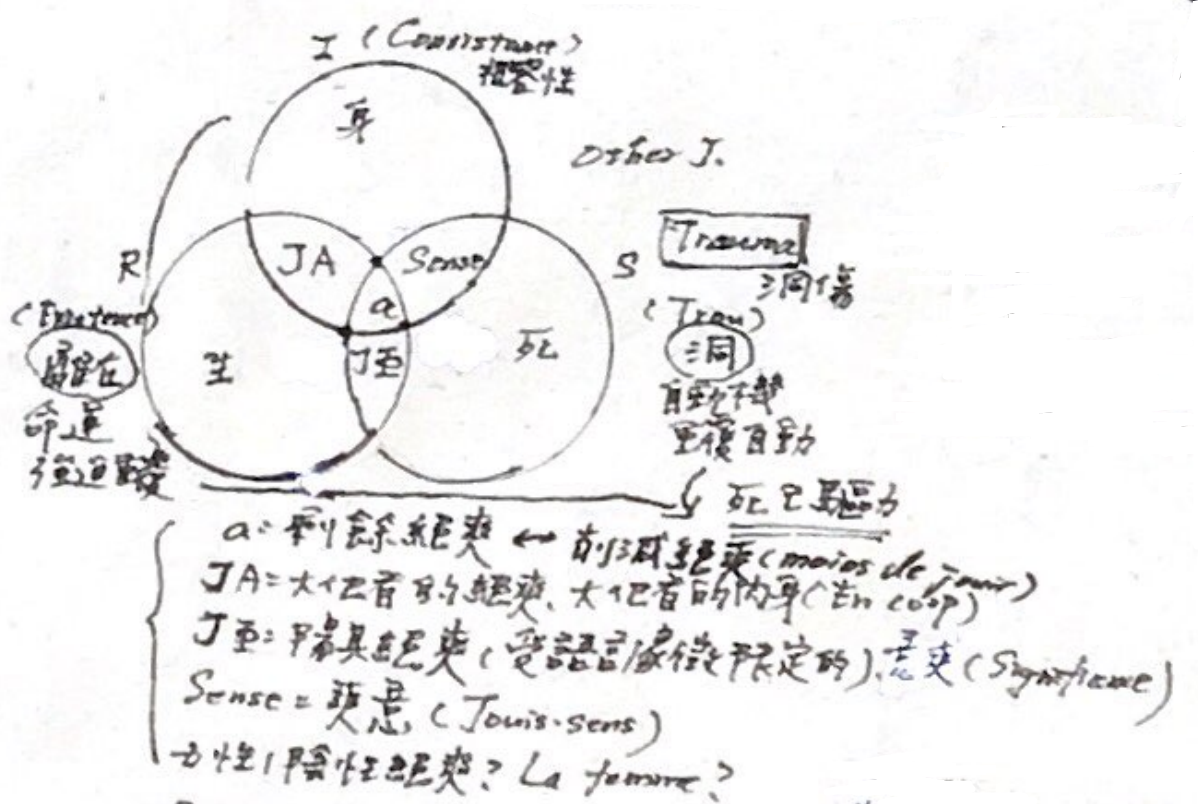 I (Consistance)
身
Other J.
R
JA
Sense
S
Trauma
洞傷
a
(Trou)
生
J亜
死
洞
命運
自動機
重複自動
死亡驅力
a: 剩餘絕爽 ↔ 削減絕爽 (moins de jouir)
JA = 大他者的絕爽、大他者的肉身 (En coop)
J亜: 陽具絕爽 (受語言像徵限定的)、意爽 (Signifiance)
Sense = 爽意 (Jouis-sens)
女性/陰性絕爽? La femme?